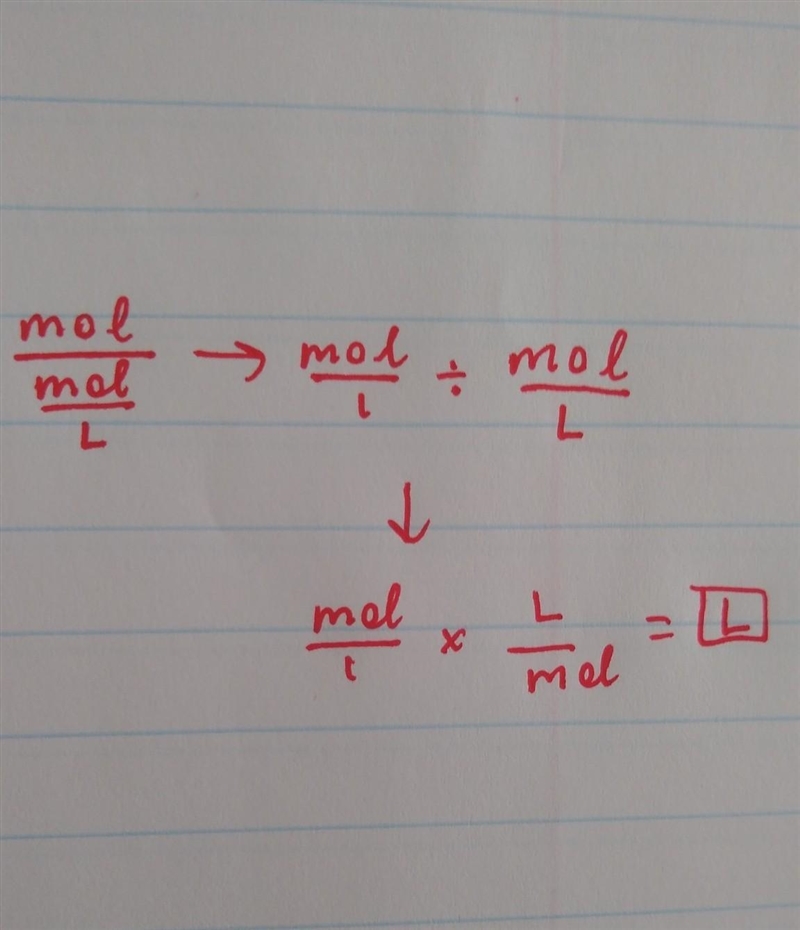 mol / mol / L → mol / 1 ÷ mol / L
↓
mol / 1 × L / mol = L